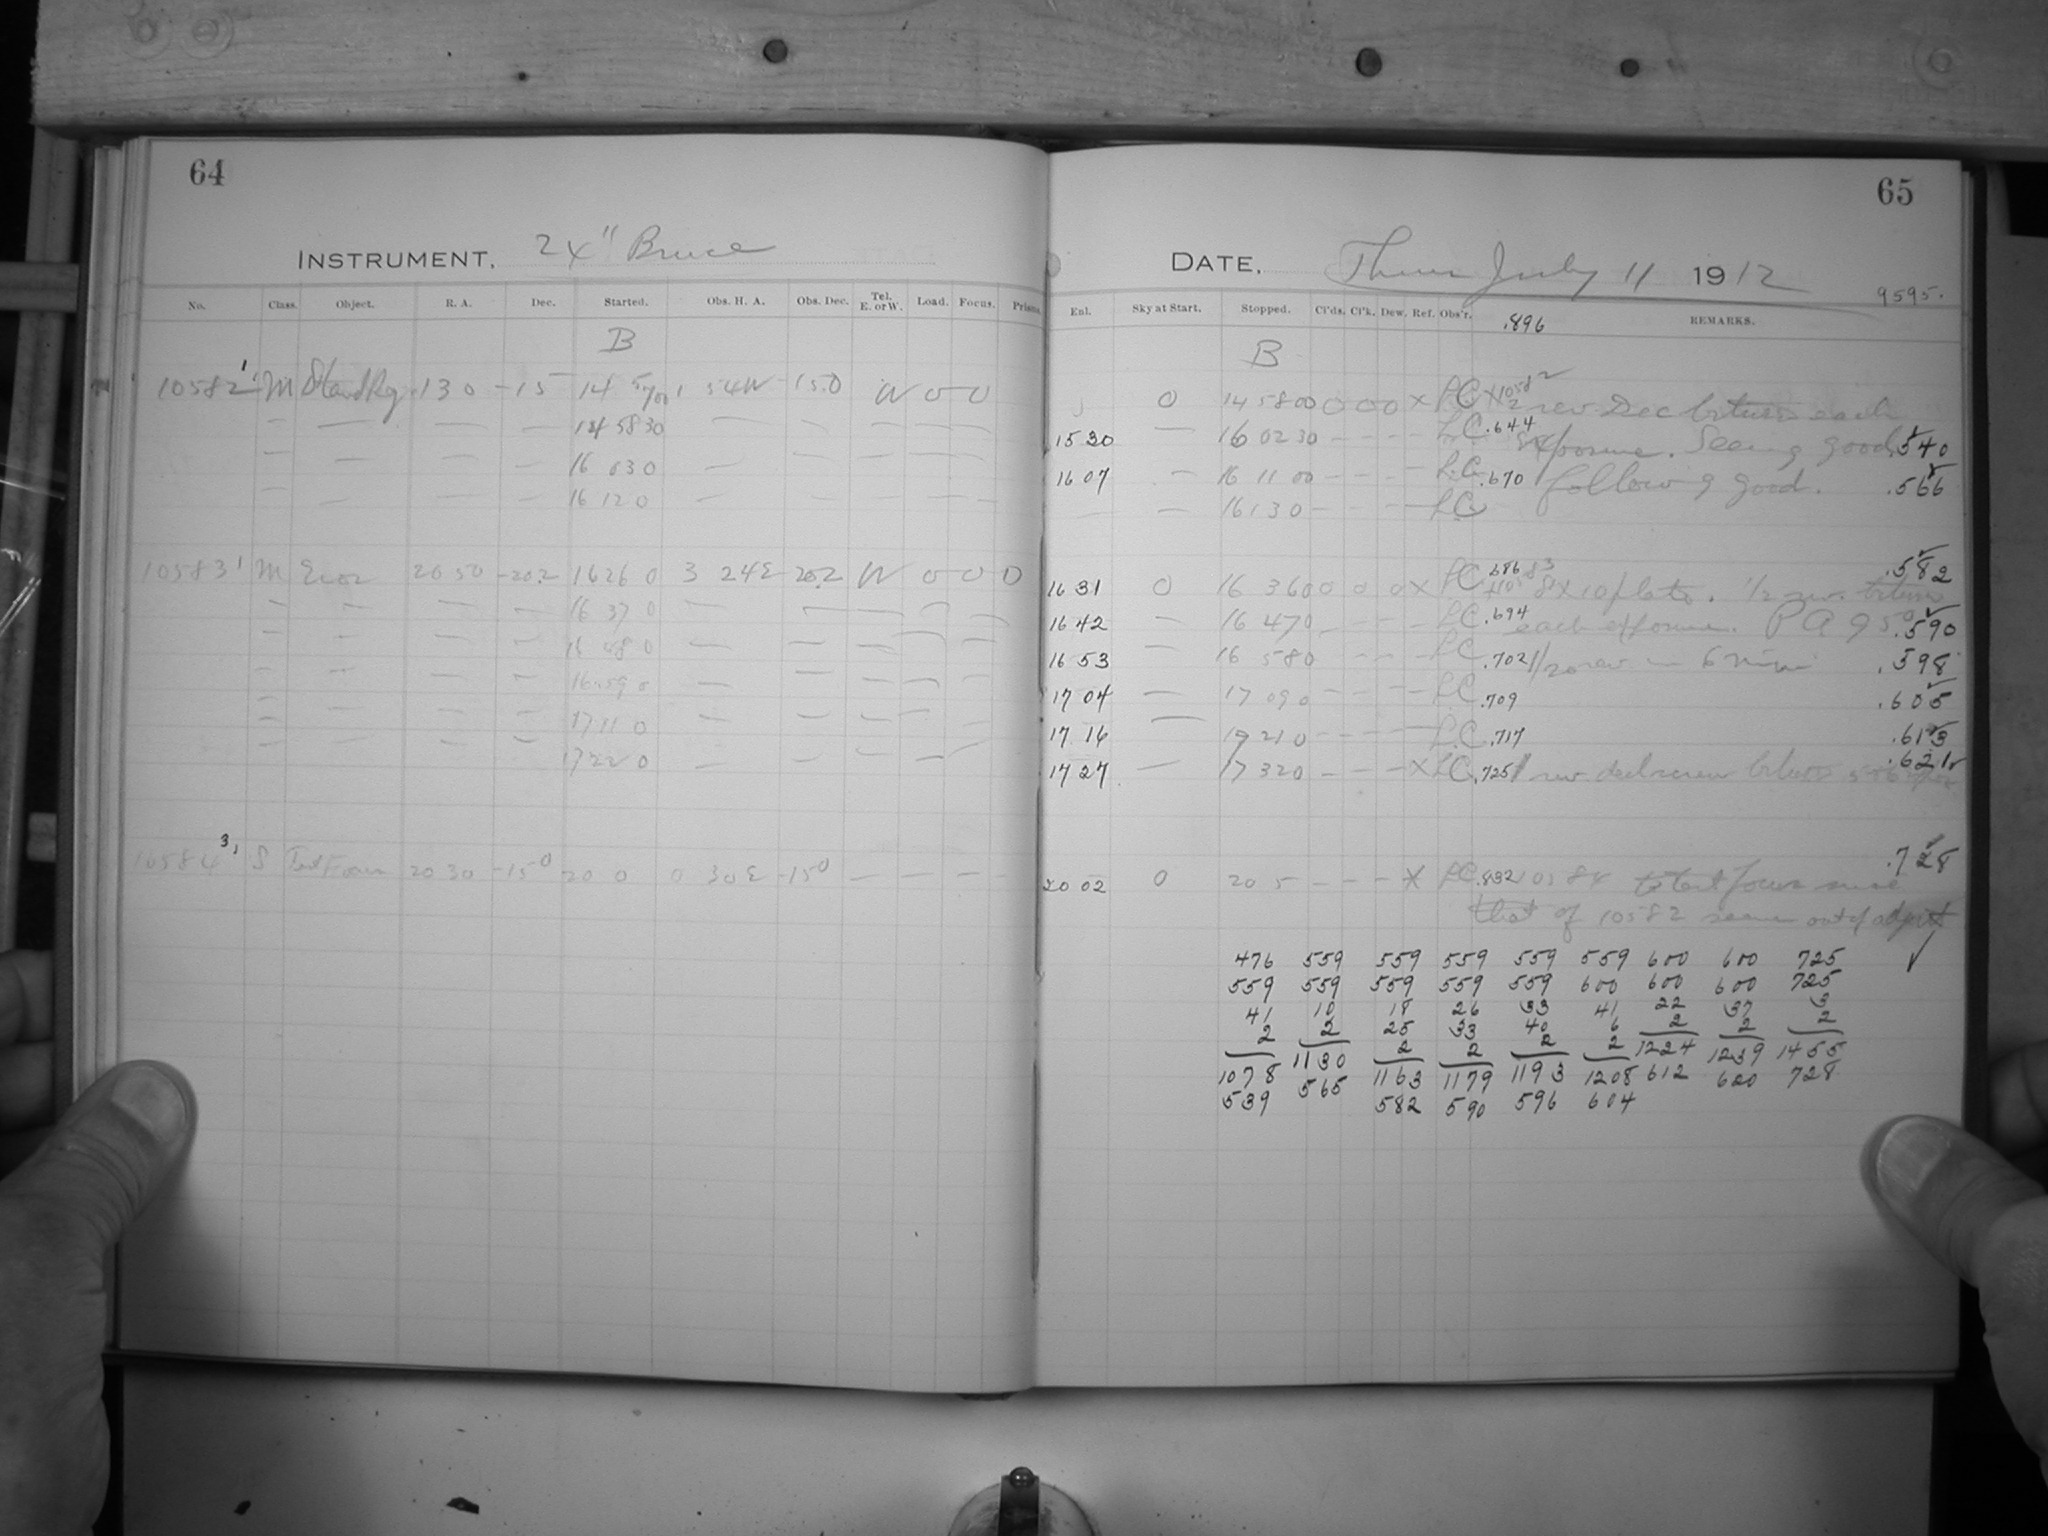 64
INSTRUMENT, 24" Bruce
No. Class. Object. R. A. Dec. Started. Obs. H. A. Obs. Dec. Tel. E. or W. Load. Focus. Prism.
B
10582 M Stand Rg. 13 0 -15 14 57 00 1 54W -15.0 W 0 0
— — — — 14 58 30 — — — — —
— — — — 16 03 0 — — — — —
— — — — 16 12 0 — — — — —
10583 M Eros 20 50 -20.2 16 26 0 3 24E -20.2 W 0 0 0
— — — — 16 37 0 — — — — —
— — — — 16 48 0 — — — — —
— — — — 16 59 0 — — — — —
— — — — 17 11 0 — — — — —
— — — — 17 22 0 — — — — —
10584 3, S Test Focus 20 30 -15 0 20 0 0 30E -15 0 — — — —
65
DATE, Thur July 11 1912
9595.
Enl. Sky at Start. Stopped. Cl'ds. Cl'k. Dew. Ref. Obs'r. .896 REMARKS.
B
0 14 58 00 0 0 0 X LC X 10582 ½ rev Dec between each
15 30 — 16 02 30 — — — — L.C. .644 exposure. Seeing good .540
16 07 — 16 11 00 — — — — L.C. .670 following good. .566
— — 16 13 0 — — — — L.C.
.582
16 31 0 16 36 0 0 0 0 X LC .686 10583 8x10 plate. ½ rev. between
16 42 — 16 47 0 — — — — LC .694 each exposure. P A 95° .590
16 53 — 16 58 0 — — — — LC .702 1/2 rev in 6 min .598
17 04 — 17 09 0 — — — — L.C. .709 .605
17 16 — 17 21 0 — — — — L.C. .717 .613
17 27 — 17 32 0 — — — X L.C. .725 1 rev decl screw between 5+6 .621
.728
20 02 0 20 5 — — — X LC .832 10584 to test focus since
that of 10582 seems out of adjust
476 559 559 559 559 559 600 600 725
559 559 559 559 559 600 600 600 725
41 10 18 26 33 41 22 37 3
2 2 25 33 40 6 2 2 2
1078 1130 2 2 2 2 1224 1239 1455
539 565 1163 1179 1193 1208 612 620 728
582 590 596 604